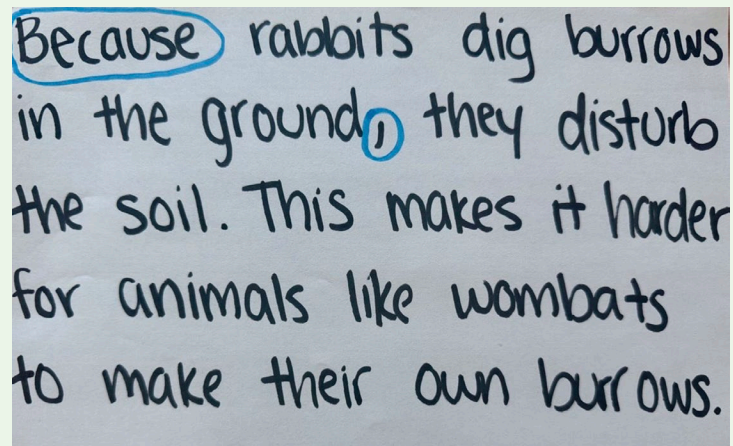 Because rabbits dig burrows
in the ground, they disturb
the soil. This makes it harder
for animals like wombats
to make their own burrows.